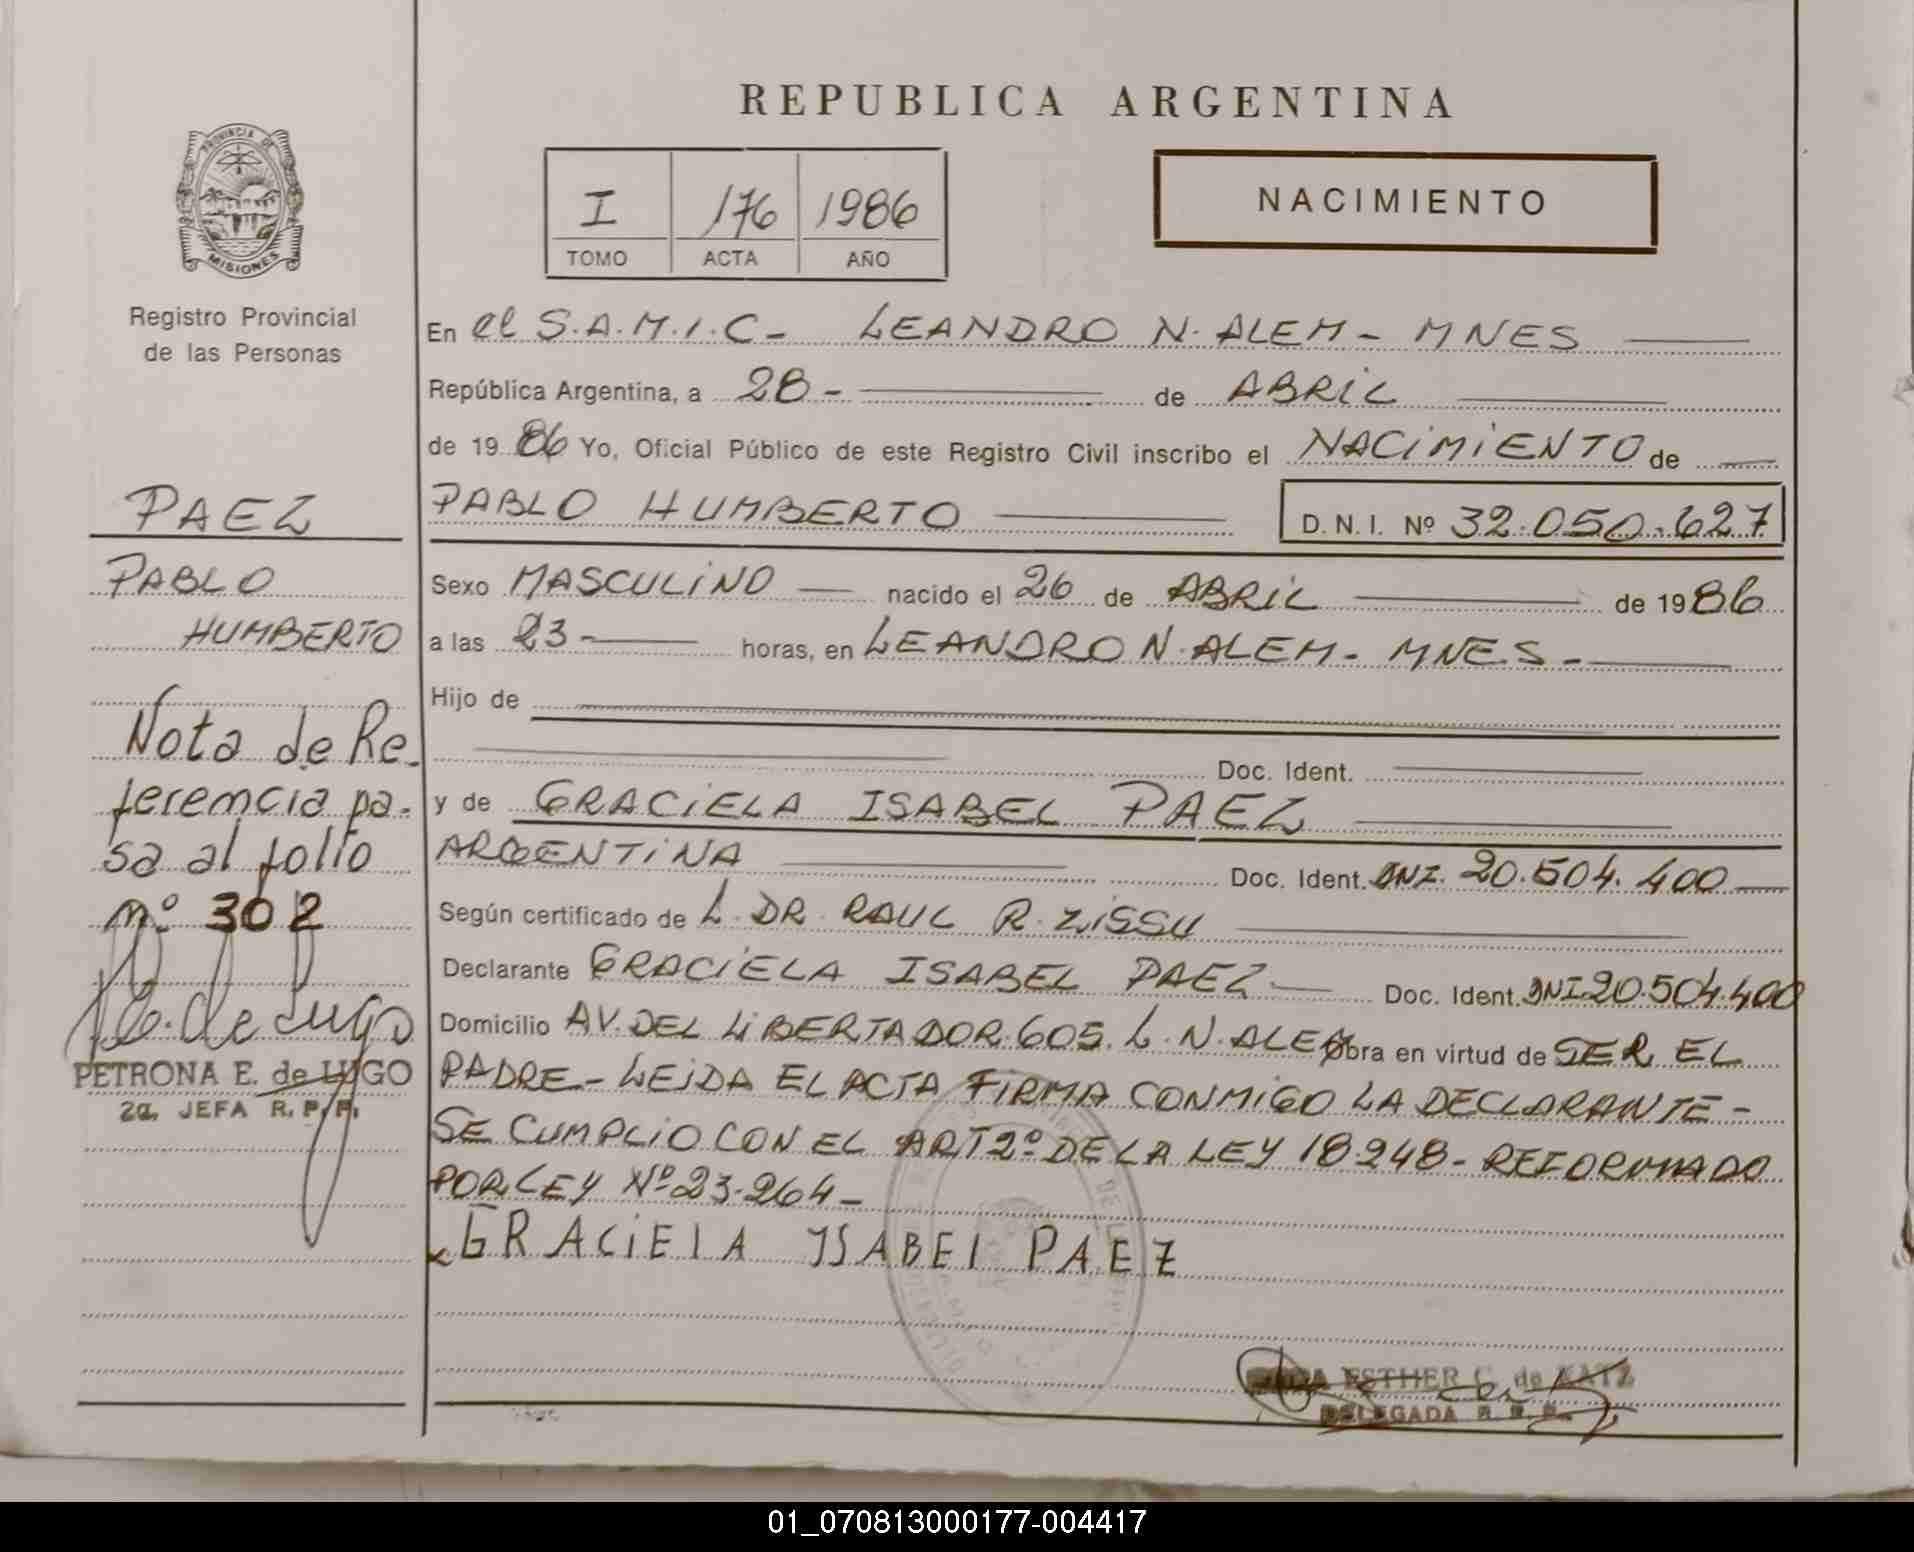 REPUBLICA ARGENTINA
PROVINCIA DE
MISIONES
I 176 1986
TOMO ACTA AÑO
NACIMIENTO
Registro Provincial
de las Personas
En el S.A.M.I.C- LEANDRO N. ALEM - MNES
República Argentina, a 28- de ABRIL
de 19 86 Yo, Oficial Público de este Registro Civil inscribo el NACIMIENTO de
PABLO HUMBERTO D. N. I. Nº 32.050.627
Sexo MASCULINO nacido el 26 de ABRIL de 19 86
a las 23- horas, en LEANDRO N. ALEM - MNES-
Hijo de
Doc. Ident.
y de GRACIELA ISABEL PAEZ
ARGENTINA Doc. Ident. DNI. 20.504.400
Según certificado de L. DR. RAUL R. ZISSU
Declarante GRACIELA ISABEL PAEZ Doc. Ident. DNI 20.504.400
Domicilio AV. DEL LIBERTADOR 605. L. N. ALEM Obra en virtud de SER EL
PADRE - LEIDA EL ACTA FIRMA CONMIGO LA DECLARANTE -
SE CUMPLIO CON EL ART 2º DE LA LEY 18.248 - REFORMADO
POR LEY Nº 23.264 -
GRACIELA ISABEL PAEZ
ESTHER C. de KATZ
DELEGADA R. P. P.
PAEZ
PABLO
HUMBERTO
Nota de Re-
ferencia pa-
sa al folio
nº 302
de Lugo
PETRONA E. de LUGO
2a. JEFA R. P. P.
01_070813000177-004417